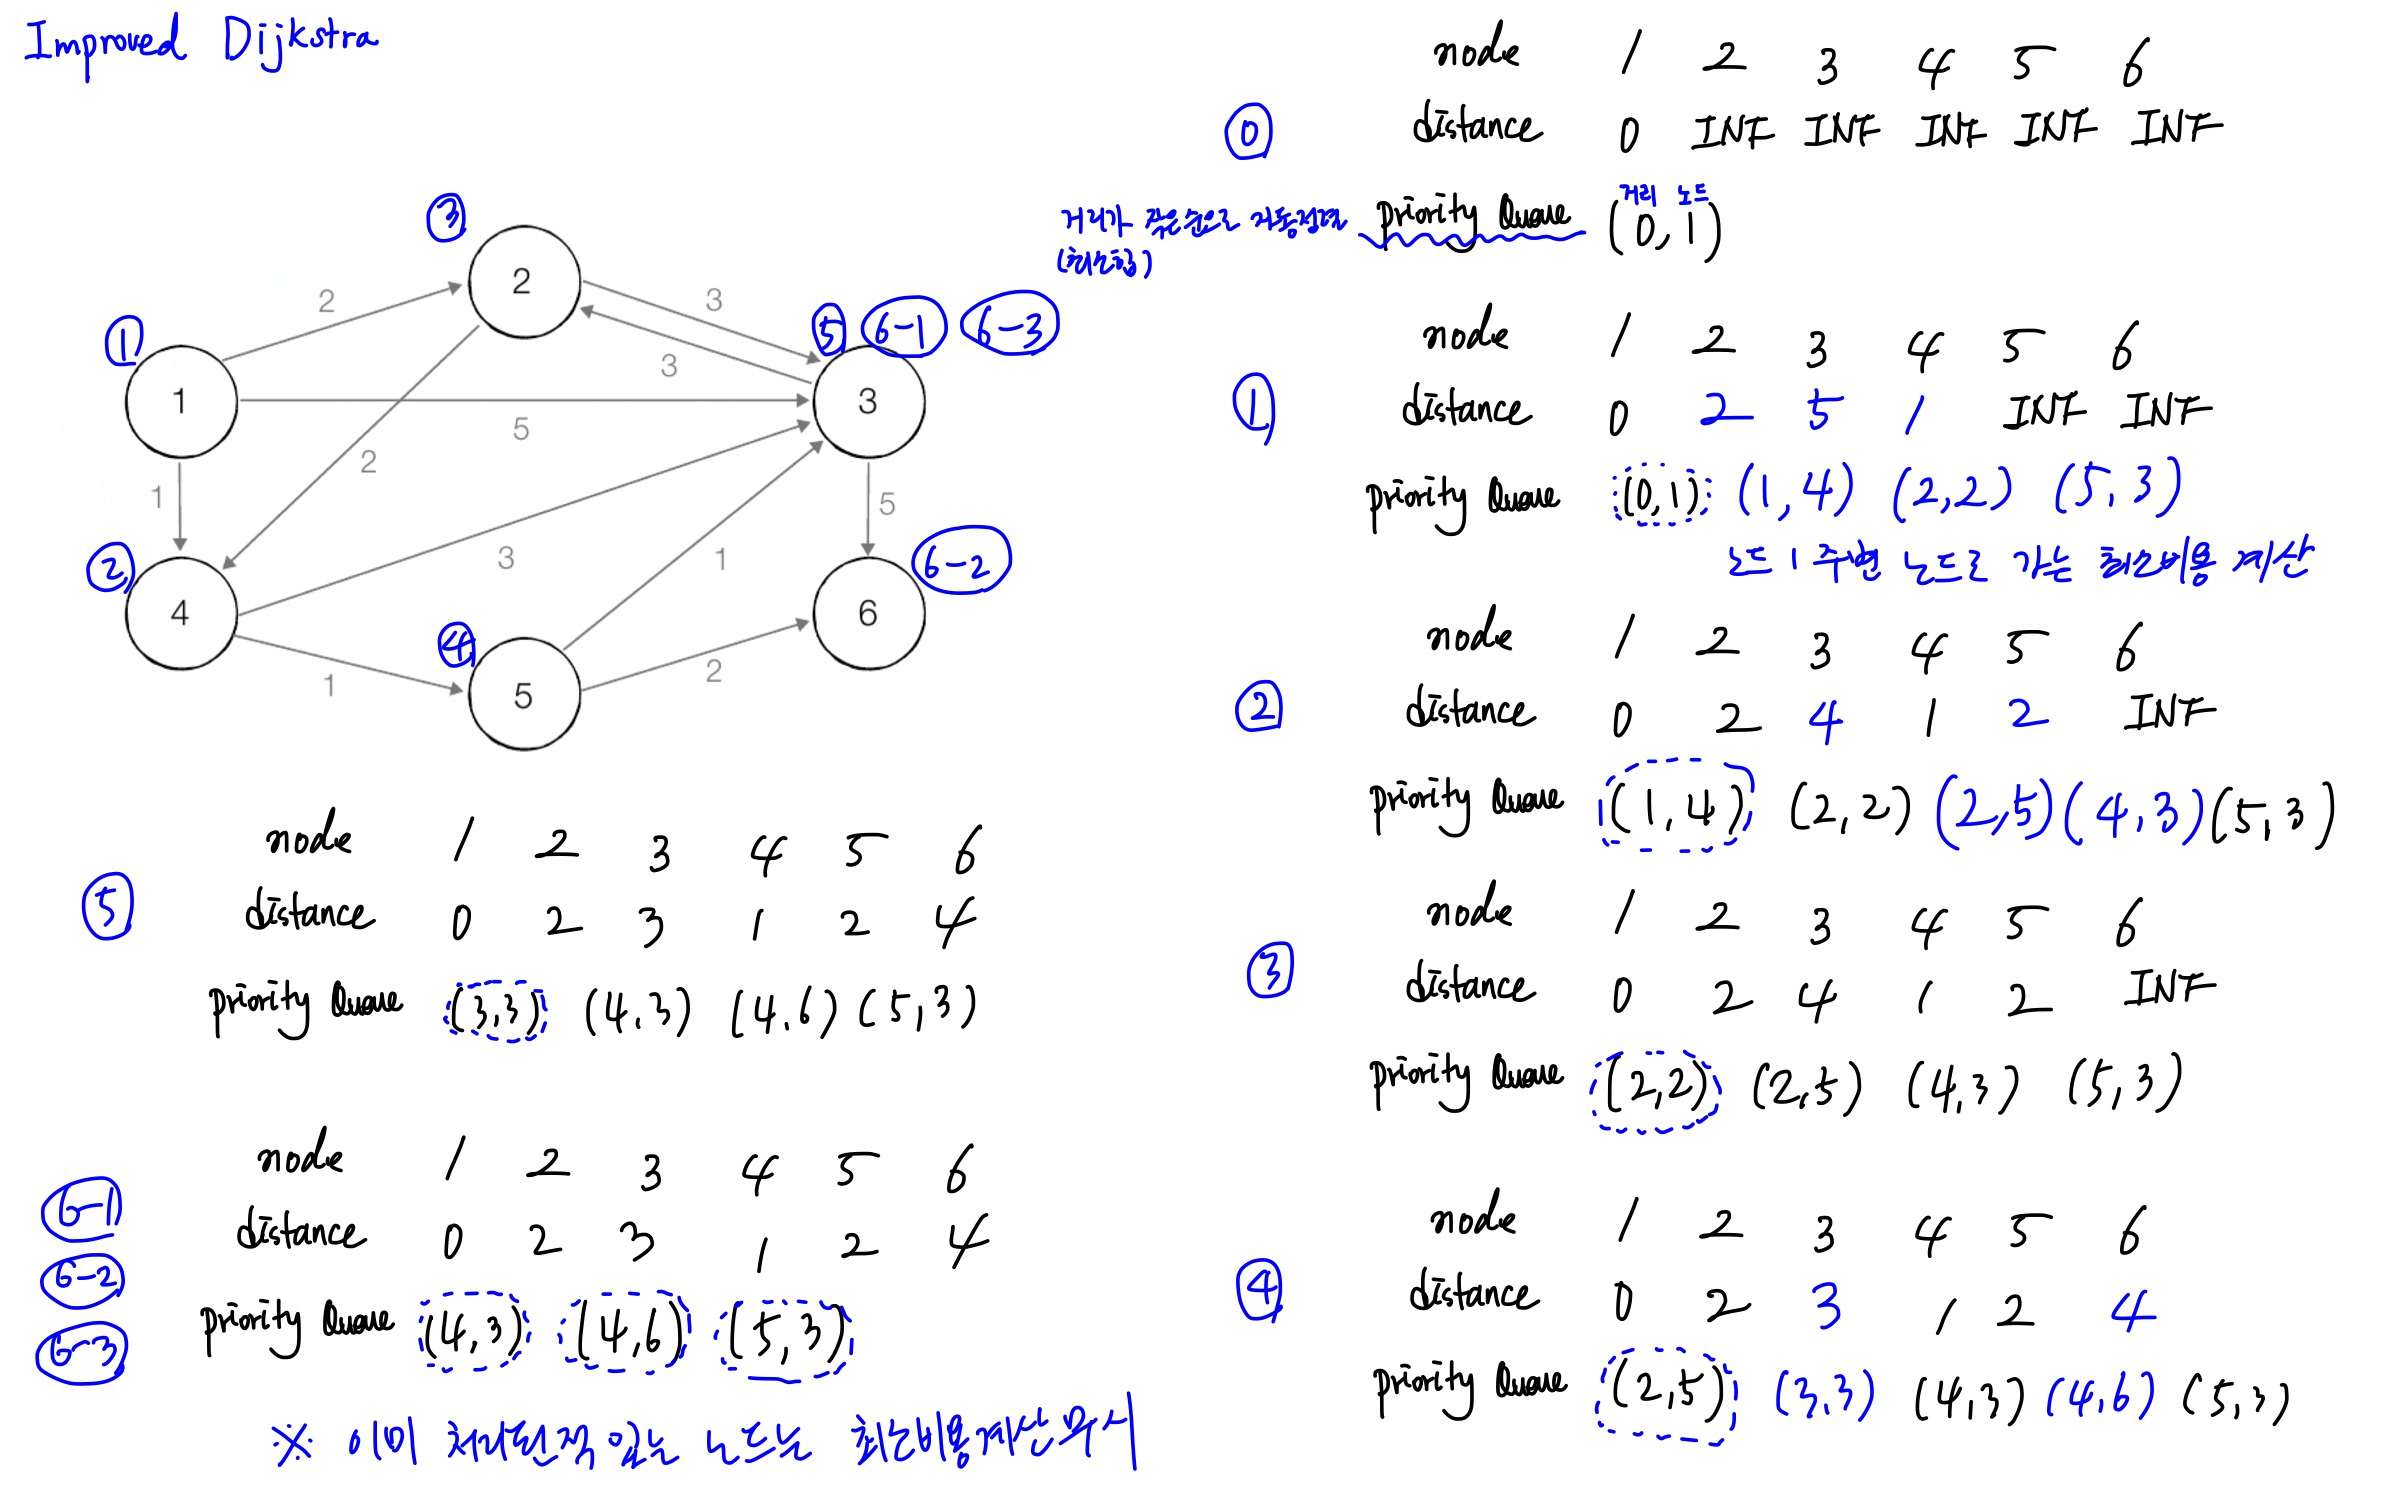 Improved Dijkstra
③
2
2
3
① ⑤ 6-1 6-3
1
3
3
5
2
1
5
②
4
3
1
6-2
6
④
5
1
2
node 1 2 3 4 5 6
⓪ distance 0 INF INF INF INF INF
거리 노드
거리가 작은순으로 자동정렬 priority Queue (0,1)
(최소힙)
node 1 2 3 4 5 6
① distance 0 2 5 1 INF INF
priority Queue (0,1) (1,4) (2,2) (5,3)
노드 1 주변 노드로 가는 최소비용 계산
node 1 2 3 4 5 6
② distance 0 2 4 1 2 INF
priority Queue (1,4) (2,2) (2,5) (4,3) (5,3)
node 1 2 3 4 5 6
③ distance 0 2 4 1 2 INF
priority Queue (2,2) (2,5) (4,3) (5,3)
node 1 2 3 4 5 6
④ distance 0 2 3 1 2 4
priority Queue (2,5) (3,3) (4,3) (4,6) (5,3)
node 1 2 3 4 5 6
⑤ distance 0 2 3 1 2 4
priority Queue (3,3) (4,3) (4,6) (5,3)
node 1 2 3 4 5 6
6-1 distance 0 2 3 1 2 4
6-2
6-3 priority Queue (4,3) (4,6) (5,3)
※ 이미 처리된적 있는 노드는 최소비용계산 무시